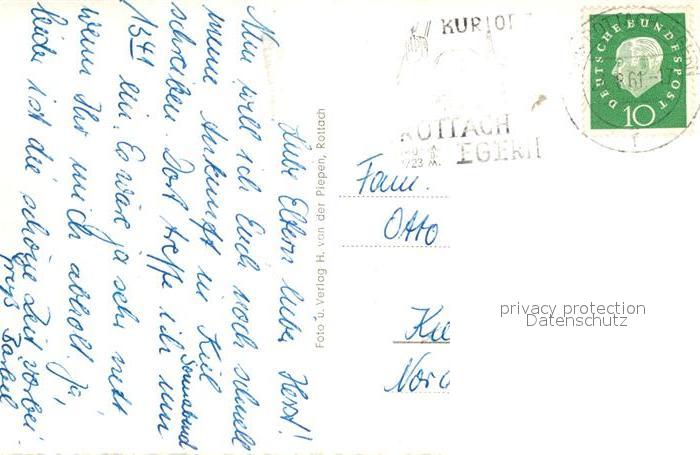 Liebe Eltern, lieber Horst!
Nun will ich Euch noch schnell
meine Ankunft in Kiel
schreiben. Dort treffe ich um Sonnabend
1341 ein. Es wäre ja sehr nett
wenn Ihr mich abholt. Ja,
leider ist die schöne Zeit vorbei.
Bärbel
Foto u. Verlag H. van der Piepen, Rottach
KURORT
ROTTACH
EGERN
DEUTSCHE BUNDESPOST
10
Fam.
Otto
privacy protection
Datenschutz